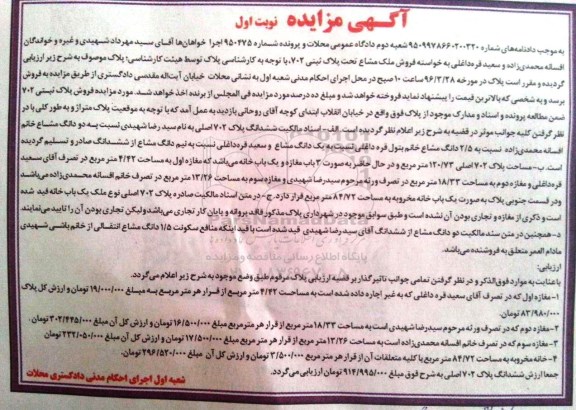 آگهی مزایده نوبت اول
به موجب دادنامه‌های شماره ۹۵۰۹۹۷۸۶۶۰۲۰۰۳۲۰ شعبه دوم دادگاه عمومی محلات و پرونده شماره ۹۵۰۴۷۵ اجرا خواهان‌ها آقای سید مهرداد شهیدی و غیره و خواندگان
افسانه محمدی‌زاده و سعید فره‌داغلی به خواسته فروش ملک مشاع تحت پلاک ثبتی ۷۰۲، با توجه به کارشناسی پلاک توسط هیئت کارشناسی؛ پلاک موصوف به شرح زیر ارزیابی
گردیده و مقرر است پلاک در مورخه ۹۶/۲/۲۸ ساعت ۱۰ صبح در محل اجرای احکام مدنی شعبه اول به نشانی محلات خیابان آیت‌اله مقدسی دادگستری از طریق مزایده به فروش
برسد و به شخصی که بالاترین قیمت را پیشنهاد نماید فروخته خواهد شد و مبلغ ده درصد مورد مزایده فی المجلس از برنده اخذ خواهد شد. مورد مزایده فروش پلاک ثبتی ۷۰۲
ضمن مطالعه پرونده و اسناد و مدارک موجود از پلاک فوق واقع در خیابان انقلاب ابتدای کوچه آقای روحانی بازدید به عمل آمد که با توجه به موقعیت پلاک متراژ و به طور کلی با در
نظر گرفتن کلیه جوانب موثر در قضیه به شرح زیر اعلام نظر گردیده است. الف- اسناد مالکیت ششدانگ پلاک ۷۰۲ اصلی به نام سید رضا شهیدی نسبت به دو دانگ مشاع خانم
افسانه محمدی‌زاده نسبت به ۲/۵ دانگ مشاع خانم بتول فره داغلی نسبت به یک دانگ مشاع و سعید فره‌داغلی نسبت به نیم دانگ مشاع از ششدانگ صادر و تسلیم گردیده
است. ب- مساحت پلاک ۷۰۲ اصلی ۱۲۰/۷۳ متر مربع و در حال حاضر به صورت ۳ باب مغازه و یک باب خانه می‌باشد که مغازه اول به مساحت ۴/۴۲ متر مربع در تصرف آقای سعید
فره‌داغلی و مغازه دوم به مساحت ۱۸/۳۳ متر مربع در تصرف ورثه مرحوم سیدرضا شهیدی و مغازه سوم به مساحت ۱۳/۲۶ متر مربع در تصرف خانم افسانه محمدی‌زاده می‌باشد
و در قسمت جنوبی پلاک به صورت یک باب خانه مخروبه به مساحت ۸۴/۷۲ متر مربع قرار دارد. ج- در متن اسناد مالکیت صادره پلاک ۷۰۲ اصلی نوع ملک یک باب خانه قید شده
است و ذکری از مغازه و تجاری بودن آن نشده است و طبق سوابق موجود در شهرداری پلاک مذکور فاقد پروانه و پایان کار تجاری می‌باشد ولیکن تجاری بودن آن را تایید می‌نمایند
د- همچنین در متن سند مالکیت دو دانگ مشاع از ششدانگ آقای سید رضا شهیدی قید شده است با قید اینکه منافع سکونت ۱/۵ دانگ مشاع انتقالی از خانم بانسی شهیدی
مادام العمر متعلق به فروشنده می‌باشد.
ارزیابی:
با عنایت به موارد فوق‌الذکر و در نظر گرفتن تمامی جوانب تاثیرگذار بر قضیه ارزیابی پلاک مرقوم طبق وضع موجود به شرح زیر اعلام می‌گردد.
۱- مغازه اول که در تصرف آقای سعید فره داغلی که به غیر اجاره داده شده است به مساحت ۴/۴۲ متر مربع از قرار هر متر مربع به مبلغ ۱۹/۰۰۰/۰۰۰ تومان و ارزش کل پلاک
۸۳/۹۸۰/۰۰۰ تومان.
۲- مغازه دوم که در تصرف ورثه مرحوم سیدرضا شهیدی است به مساحت ۱۸/۳۳ متر مربع از قرار هر متر مربع مبلغ ۱۶/۵۰۰/۰۰۰ تومان و ارزش کل آن مبلغ ۳۰۲/۴۴۵/۰۰۰ تومان.
۳- مغازه سوم که در تصرف خانم افسانه محمدی‌زاده است به مساحت ۱۳/۲۶ متر مربع از قرار هر متر مربع مبلغ ۱۷/۵۰۰/۰۰۰ تومان و ارزش کل آن مبلغ ۲۳۲/۰۵۰/۰۰۰ تومان
۴- خانه مخروبه به مساحت ۸۴/۷۲ متر مربع با کلیه متعلقات آن از قرار هر متر مربع ۳/۵۰۰/۰۰۰ تومان و ارزش کل آن مبلغ ۲۹۶/۵۲۰/۰۰۰ تومان.
جمعا ارزش ششدانگ پلاک ۷۰۲ اصلی به شرح فوق مبلغ ۹۱۴/۹۹۵/۰۰۰ تومان ارزیابی می‌گردد.
شعبه اول اجرای احکام مدنی دادگستری محلات